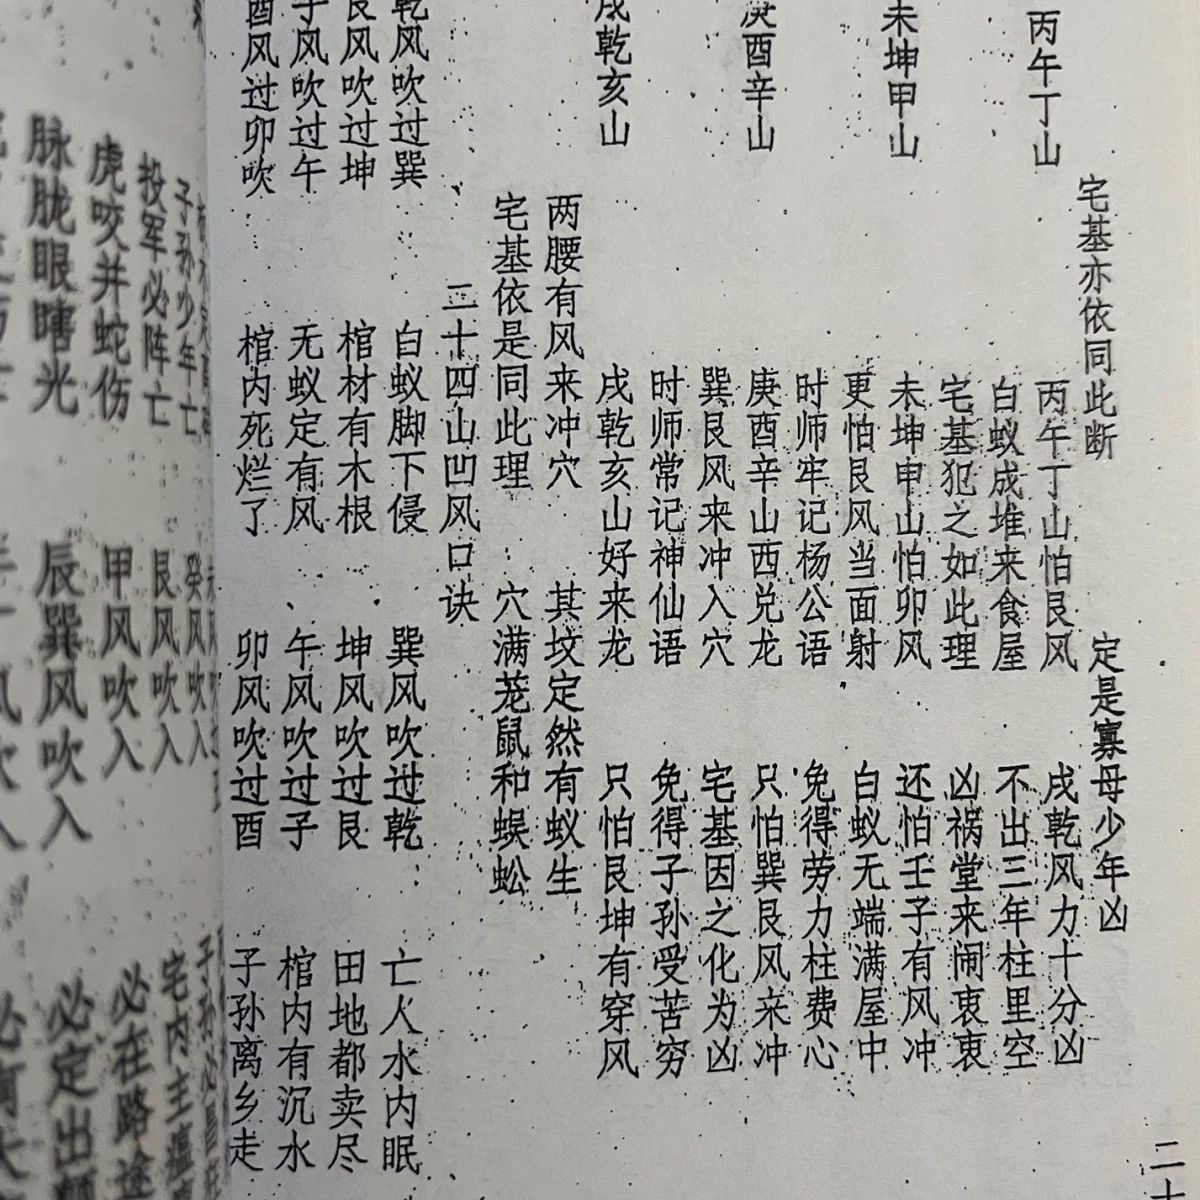 宅基亦依同此断 定是寡母少年凶
丙午丁山
丙午丁山怕艮风 戌乾风力十分凶
白蚁成堆来食屋 不出三年柱里空
宅基犯之如此理 凶祸堂来闹衷衷
未坤甲山
未坤申山怕卯风 还怕壬子有风冲
更怕艮风当面射 白蚁无端满屋中
时师牢记杨公语 免得劳力柱费心
庚酉辛山
庚酉辛山西兑龙 只怕巽艮风来冲
巽艮风来冲入穴 宅基因之化为凶
时师常记神仙语 免得子孙受苦穷
戌乾亥山
戌乾亥山好来龙 只怕艮坤有穿风
两腰有风来冲穴 其坟定然有蚁生
宅基依是同此理 穴满茏鼠和蜈蚣
二十四山凹风口诀
乾风吹过巽 白蚁脚下侵 巽风吹过乾 亡人水内眠
艮风吹过坤 棺材有木根 坤风吹过艮 田地都卖尽
子风吹过午 无蚁定有风 午风吹过子 棺内有沉水
酉风过卯吹 棺内死烂了 卯风吹过酉 子孙离乡走
二十
子孙少年亡 癸风吹入 子孙必
投军必阵亡 艮风吹入 宅内主瘟
虎咬并蛇伤 甲风吹入 必在路途
脉胧眼瞎光 辰巽风吹入 必定出